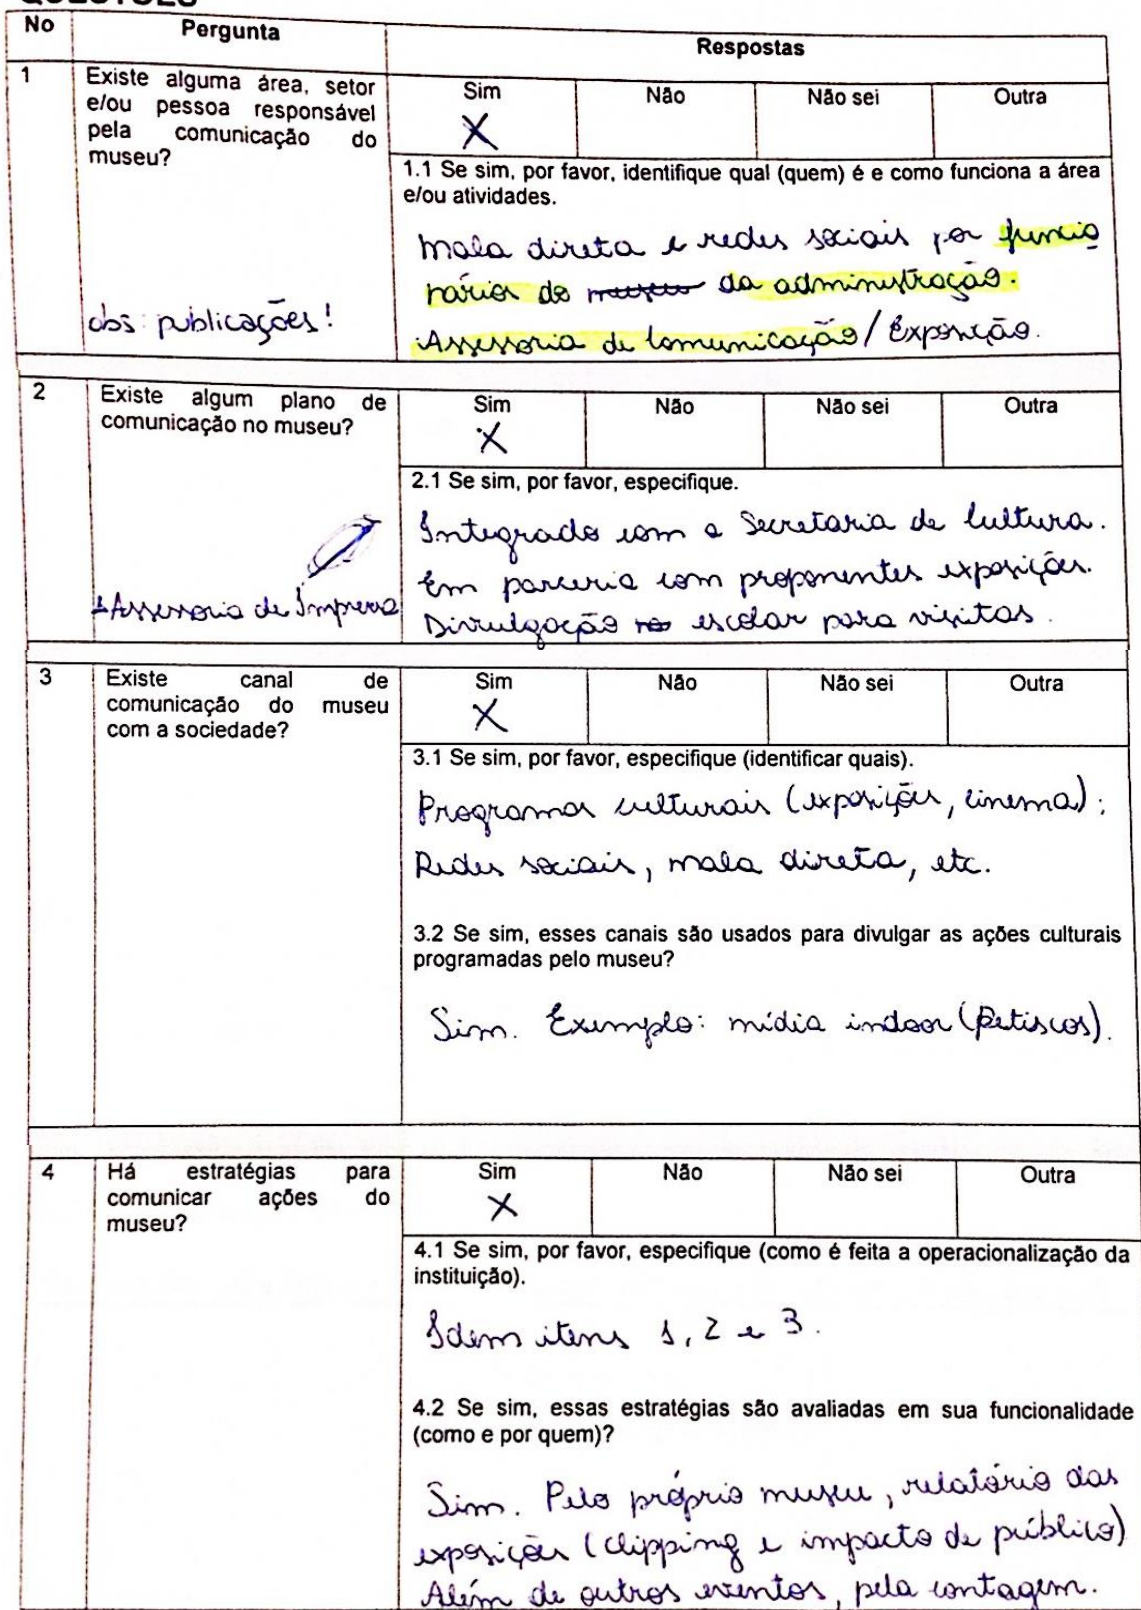 No Pergunta Respostas
1 Existe alguma área, setor
e/ou pessoa responsável
pela comunicação do
museu?
obs: publicações!
Sim Não Não sei Outra
X
1.1 Se sim, por favor, identifique qual (quem) é e como funciona a área
e/ou atividades.
Mala direta e redes sociais por funcio
nários do museu da administração.
Assessoria de Comunicação/Exposição.
2 Existe algum plano de
comunicação no museu?
Assessoria de Imprensa
Sim Não Não sei Outra
X
2.1 Se sim, por favor, especifique.
Integrado com a Secretaria de Cultura.
Em parceria com proponentes exposições.
Divulgação escolar para visitas.
3 Existe canal de
comunicação do museu
com a sociedade?
Sim Não Não sei Outra
X
3.1 Se sim, por favor, especifique (identificar quais).
Programas culturais (exposições, cinema);
Redes sociais, mala direta, etc.
3.2 Se sim, esses canais são usados para divulgar as ações culturais
programadas pelo museu?
Sim. Exemplo: mídia indoor (Petiscos).
4 Há estratégias para
comunicar ações do
museu?
Sim Não Não sei Outra
X
4.1 Se sim, por favor, especifique (como é feita a operacionalização da
instituição).
Idem itens 1, 2 e 3.
4.2 Se sim, essas estratégias são avaliadas em sua funcionalidade
(como e por quem)?
Sim. Pelo próprio museu, relatório das
exposições (clipping e impacto de público)
Além de outros eventos, pela contagem.